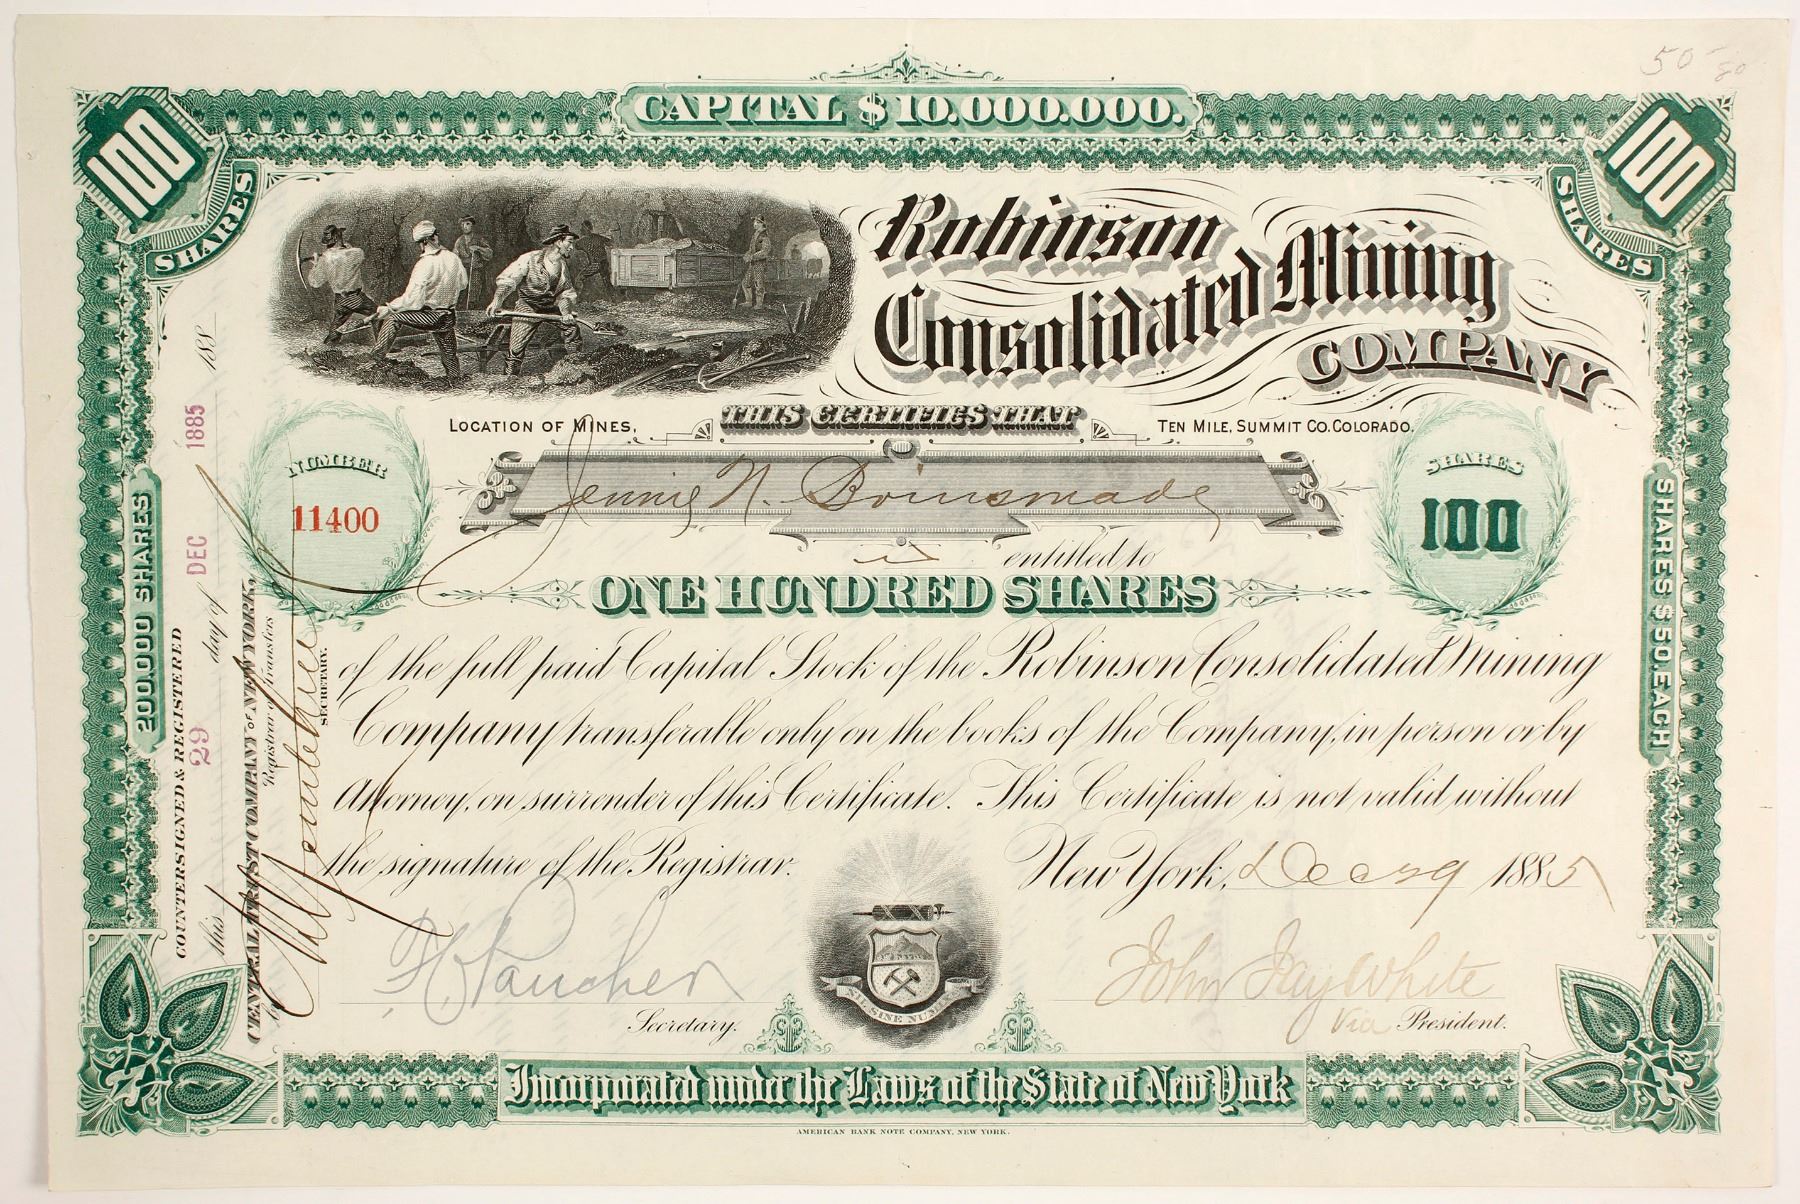 50 - 80
CAPITAL $10.000.000.
100
SHARES
100
SHARES
Robinson
Consolidated Mining
COMPANY
LOCATION OF MINES,
THIS CERTIFIES THAT
TEN MILE, SUMMIT CO. COLORADO.
NUMBER
11400
Jennie N. Brinsmade
SHARES
100
is entitled to
ONE HUNDRED SHARES
of the full paid Capital Stock of the Robinson Consolidated Mining
Company transferable only on the books of the Company, in person or by
Attorney, on surrender of this Certificate. This Certificate is not valid without
the signature of the Registrar.
New York, Dec 29 1885
John Jay White
Secretary.
Vice President.
SINE NUMINE
Incorporated under the Laws of the State of New York
AMERICAN BANK NOTE COMPANY, NEW YORK.
200.000 SHARES
SHARES $50. EACH
COUNTERSIGNED & REGISTERED
this 29 day of DEC 1885 188
CENTRAL TRUST COMPANY OF NEW YORK,
Registrar of Transfers
by
SECRETARY.